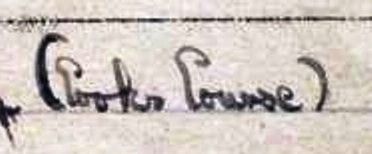 (Cooks Course)